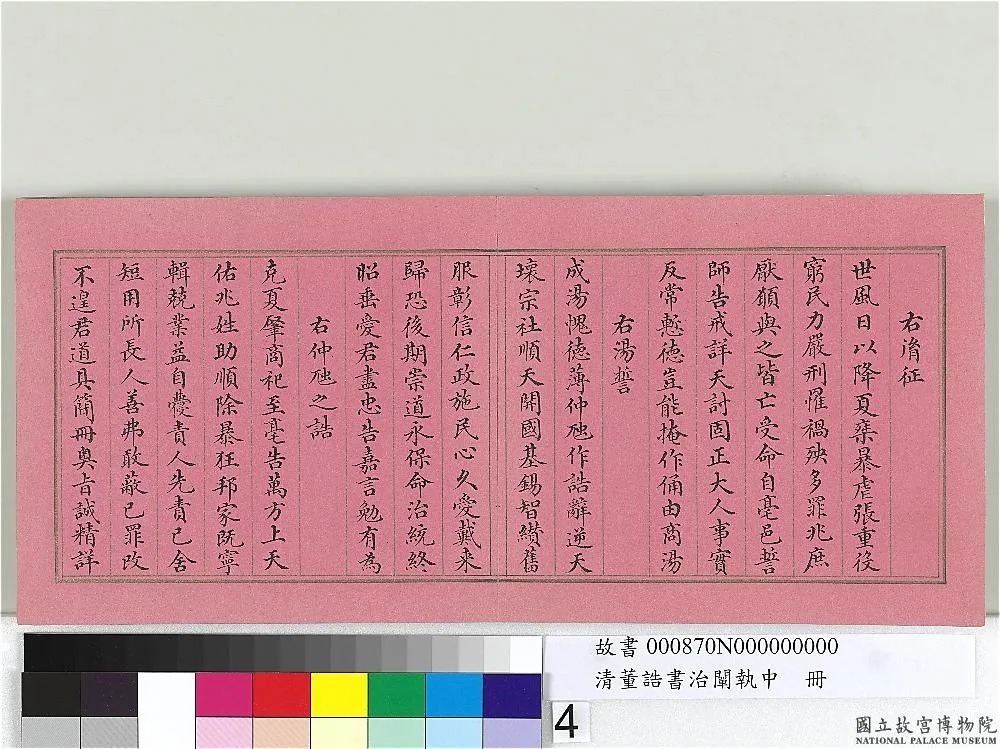 右胤征
世風日以降夏桀暴虐張重役
窮民力嚴刑罹禍殃多罪兆庶
厭願與之皆亡受命自亳邑誓
師告戒詳天討固正大人事實
反常慙德豈能掩作俑由商湯
右湯誓
成湯愧德薄仲虺作誥辭逆天
壞宗社順天開國基錫智纘舊
服彰信仁政施民心久愛戴来
歸恐後期崇道永保命治統終
昭垂愛君盡忠告嘉言勉有為
右仲虺之誥
克夏肇商祀至亳告萬方上天
佑兆姓助順除暴狂邦家既寧
輯兢業益自覺責人先責已舍
短用所長人善弗敢蔽已罪改
不遑君道具簡冊奧旨誠精詳
故書 000870N000000000
清董誥書治闡執中 冊
4
國立故宮博物院
NATIONAL PALACE MUSEUM